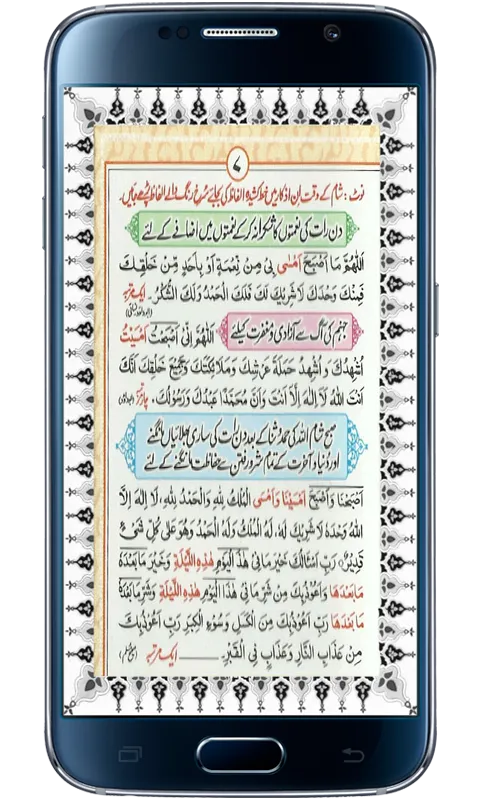 ۷
نوٹ: شام کے وقت ان اذکار میں خط کشیدہ الفاظ کی بجائے سُرخ رنگ والے الفاظ پڑھے جائیں۔
دن رات کی نعمتوں کا شکرانہ کر کے نعمتوں میں اضافے کے لئے
اَللّٰهُمَّ مَا اَصْبَحَ اَمْسٰى بِىْ مِنْ نِّعْمَةٍ اَوْ بِاَحَدٍ مِّنْ خَلْقِكَ
فَمِنْكَ وَحْدَكَ لَا شَرِيْكَ لَكَ فَلَكَ الْحَمْدُ وَلَكَ الشُّكْرُ۔ ایک مرتبہ
جہنم کی آگ سے آزادی و مغفرت کیلئے
اَللّٰهُمَّ اِنِّىْ اَصْبَحْتُ اَمْسَيْتُ
اُشْهِدُكَ وَاُشْهِدُ حَمَلَةَ عَرْشِكَ وَمَلَائِكَتَكَ وَجَمِيْعَ خَلْقِكَ اَنَّكَ
اَنْتَ اللّٰهُ لَا اِلٰهَ اِلَّا اَنْتَ وَاَنَّ مُحَمَّدًا عَبْدُكَ وَرَسُوْلُكَ۔ چار مرتبہ
صبح شام اللہ کی حمد و ثنا کے بعد دن رات کی ساری بھلائیاں مانگنے
اور دنیا و آخرت کے تمام شرور و فتن سے حفاظت مانگنے کے لئے
اَصْبَحْنَا وَاَصْبَحَ اَمْسَيْنَا وَاَمْسَى الْمُلْكُ لِلّٰهِ وَالْحَمْدُ لِلّٰهِ، لَا اِلٰهَ اِلَّا
اللّٰهُ وَحْدَهٗ لَا شَرِيْكَ لَهٗ، لَهُ الْمُلْكُ وَلَهُ الْحَمْدُ وَهُوَ عَلٰى كُلِّ شَىْءٍ
قَدِيْرٌ، رَبِّ اَسْاَلُكَ خَيْرَ مَا فِىْ هٰذَا الْيَوْمِ هٰذِهِ اللَّيْلَةِ وَخَيْرَ مَا بَعْدَهٗ
مَا بَعْدَهَا وَاَعُوْذُ بِكَ مِنْ شَرِّ مَا فِىْ هٰذَا الْيَوْمِ هٰذِهِ اللَّيْلَةِ وَشَرِّ مَا بَعْدَهٗ
مَا بَعْدَهَا رَبِّ اَعُوْذُ بِكَ مِنَ الْكَسَلِ وَسُوْٓءِ الْكِبَرِ رَبِّ اَعُوْذُ بِكَ
مِنْ عَذَابٍ فِى النَّارِ وَعَذَابٍ فِى الْقَبْرِ۔ ایک مرتبہ